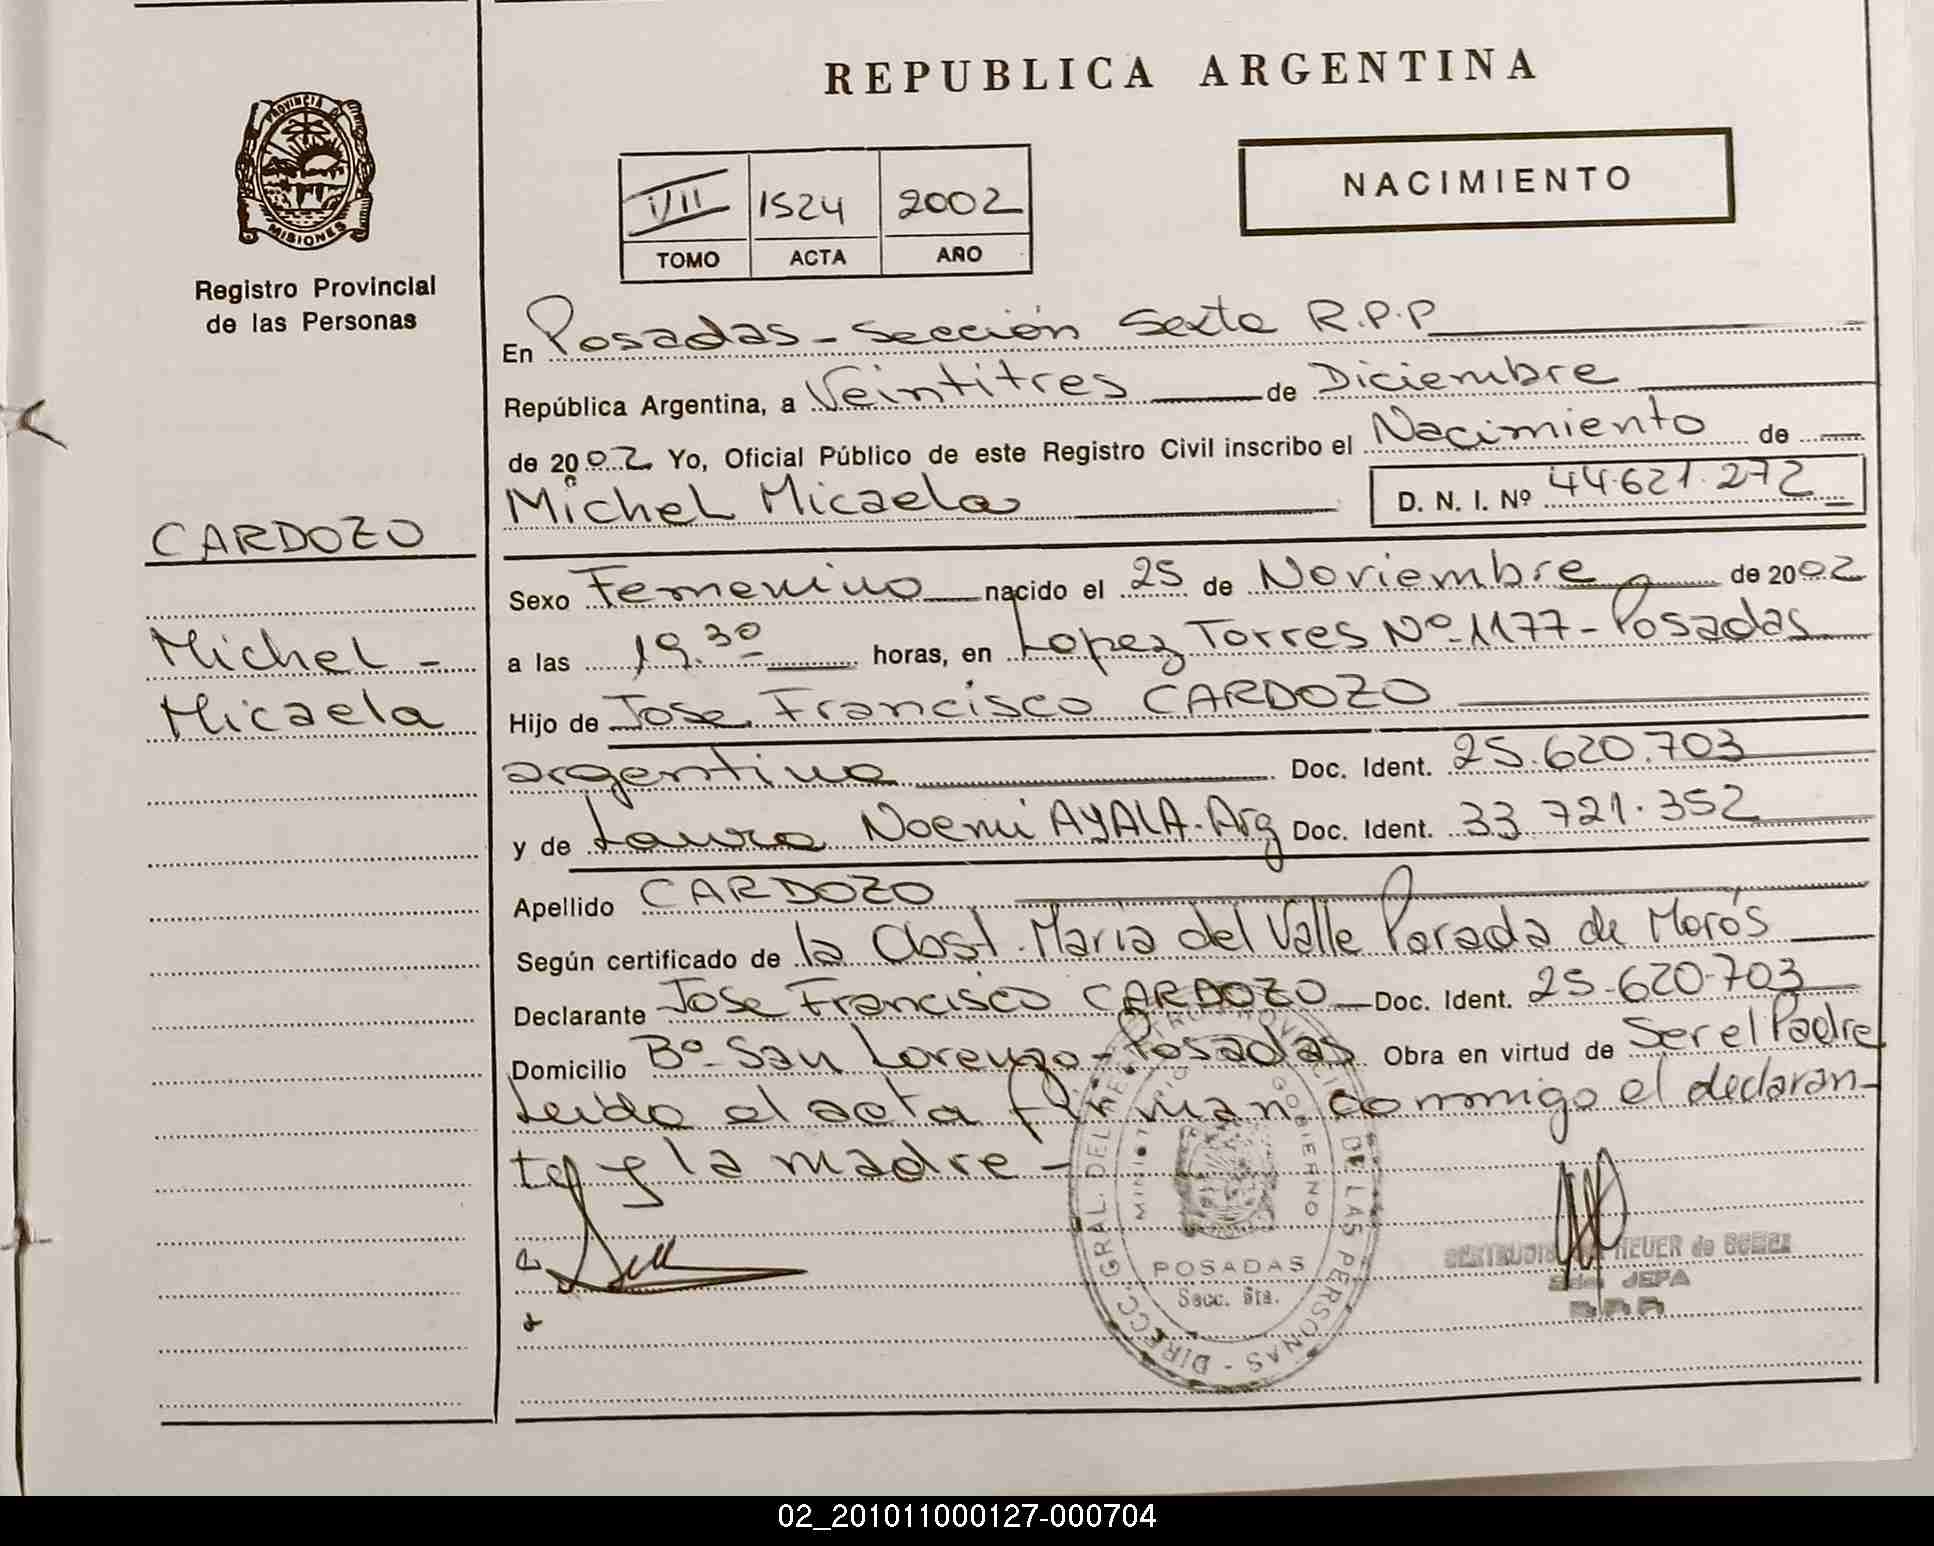 REPUBLICA ARGENTINA
PROVINCIA DE
MISIONES
Registro Provincial
de las Personas
NACIMIENTO
1524 2002
TOMO ACTA AÑO
En Posadas - Sección Sexta R.P.P
República Argentina, a Veintitres de Diciembre
de 2002 Yo, Oficial Público de este Registro Civil inscribo el Nacimiento de
Michel Micaela D. N. I. Nº 44.621.272
CARDOZO
Michel -
Micaela
Sexo Femenino nacido el 25 de Noviembre de 2002
a las 19.30 horas, en Lopez Torres Nº 1177 - Posadas
Hijo de Jose Francisco CARDOZO
argentino Doc. Ident. 25.620.703
y de Laura Noemi AYALA - Arg Doc. Ident. 33 721.352
Apellido CARDOZO
Según certificado de la Obst. Maria del Valle Parada de Morós
Declarante Jose Francisco CARDOZO Doc. Ident. 25-620-703
Domicilio Bº San Lorenzo - Posadas Obra en virtud de Ser el Padre
Leido el acta firman conmigo el declaran-
te y la madre -
DIRECC. GRAL. DEL DE LAS PERSONAS
GOBIERNO
POSADAS
Secc. 6ta.
HEUER de
JEFA
02_201011000127-000704